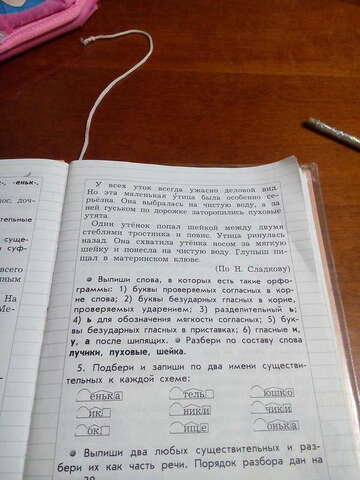 У всех уток всегда ужасно деловой вид.
Но эта маленькая утица была особенно се-
рьёзна. Она выбралась на чистую воду, а за
ней гуськом по дорожке заторопились пуховые
утята.
Один утёнок попал шейкой между двумя
стеблями тростника и повис. Утица ринулась
назад. Она схватила утёнка носом за мягкую
шейку и понесла на чистую воду. Глупыш пи-
щал в материнском клюве.
(По Н. Сладкову)
Выпиши слова, в которых есть такие орфо-
граммы: 1) буквы проверяемых согласных в кор-
не слова; 2) буквы безударных гласных в корне,
проверяемых ударением; 3) разделительный ь;
4) ь для обозначения мягкости согласных; 5) бук-
вы безударных гласных в приставках; 6) гласные и,
у, а после шипящих. Разбери по составу слова
лучики, пуховые, шейка.
5. Подбери и запиши по два имени существи-
тельных к каждой схеме:
еньк а тель юшк о
ик ник и чик и
ок ищ е оньк а
Выпиши два любых существительных и раз-
бери их как часть речи. Порядок разбора дан на
-еньк-,
доч-
суще-
суф-
всего
На
Ме-